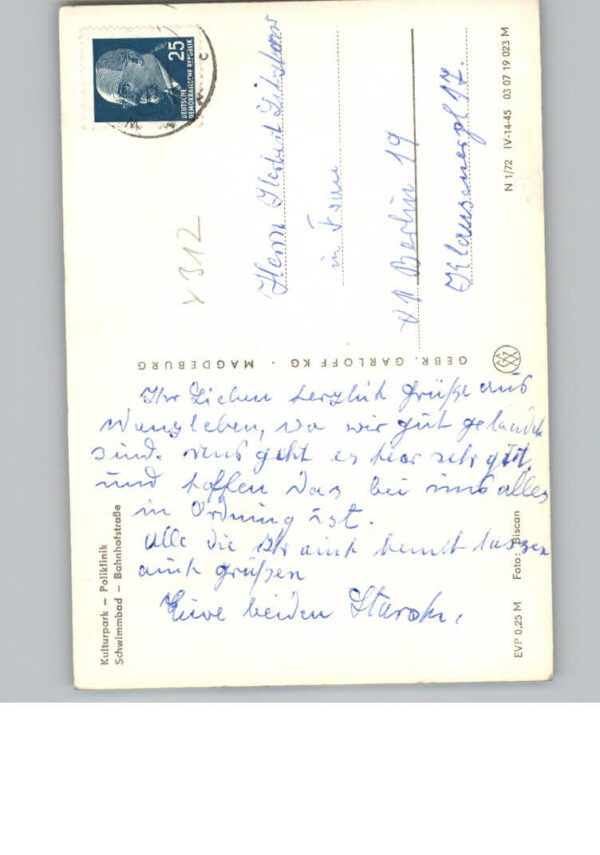 Kulturpark – Poliklinik
Schwimmbad – Bahnhofstraße
Ihr Lieben herzlich Grüße aus
Wanzleben, wo wir gut gelandet
sind. uns geht es hier sehr gut,
und hoffen das bei uns alles
in Ordnung ist.
Alle die Ihr auch kennt lassen
auch grüßen
Eure beiden
GEBR. GARLOFF KG · MAGDEBURG
25
DEUTSCHE
DEMOKRATISCHE REPUBLIK
Herrn Herbert
in Frau
Berlin 19
Klausenerpl 17.
x 312
EVP 0,25 M
Foto: Biscan
N 1/72 IV-14-45 03 07 19 023 M